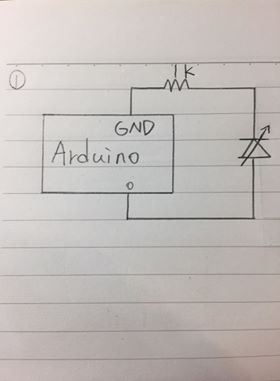 ①
1K
GND
Arduino
0